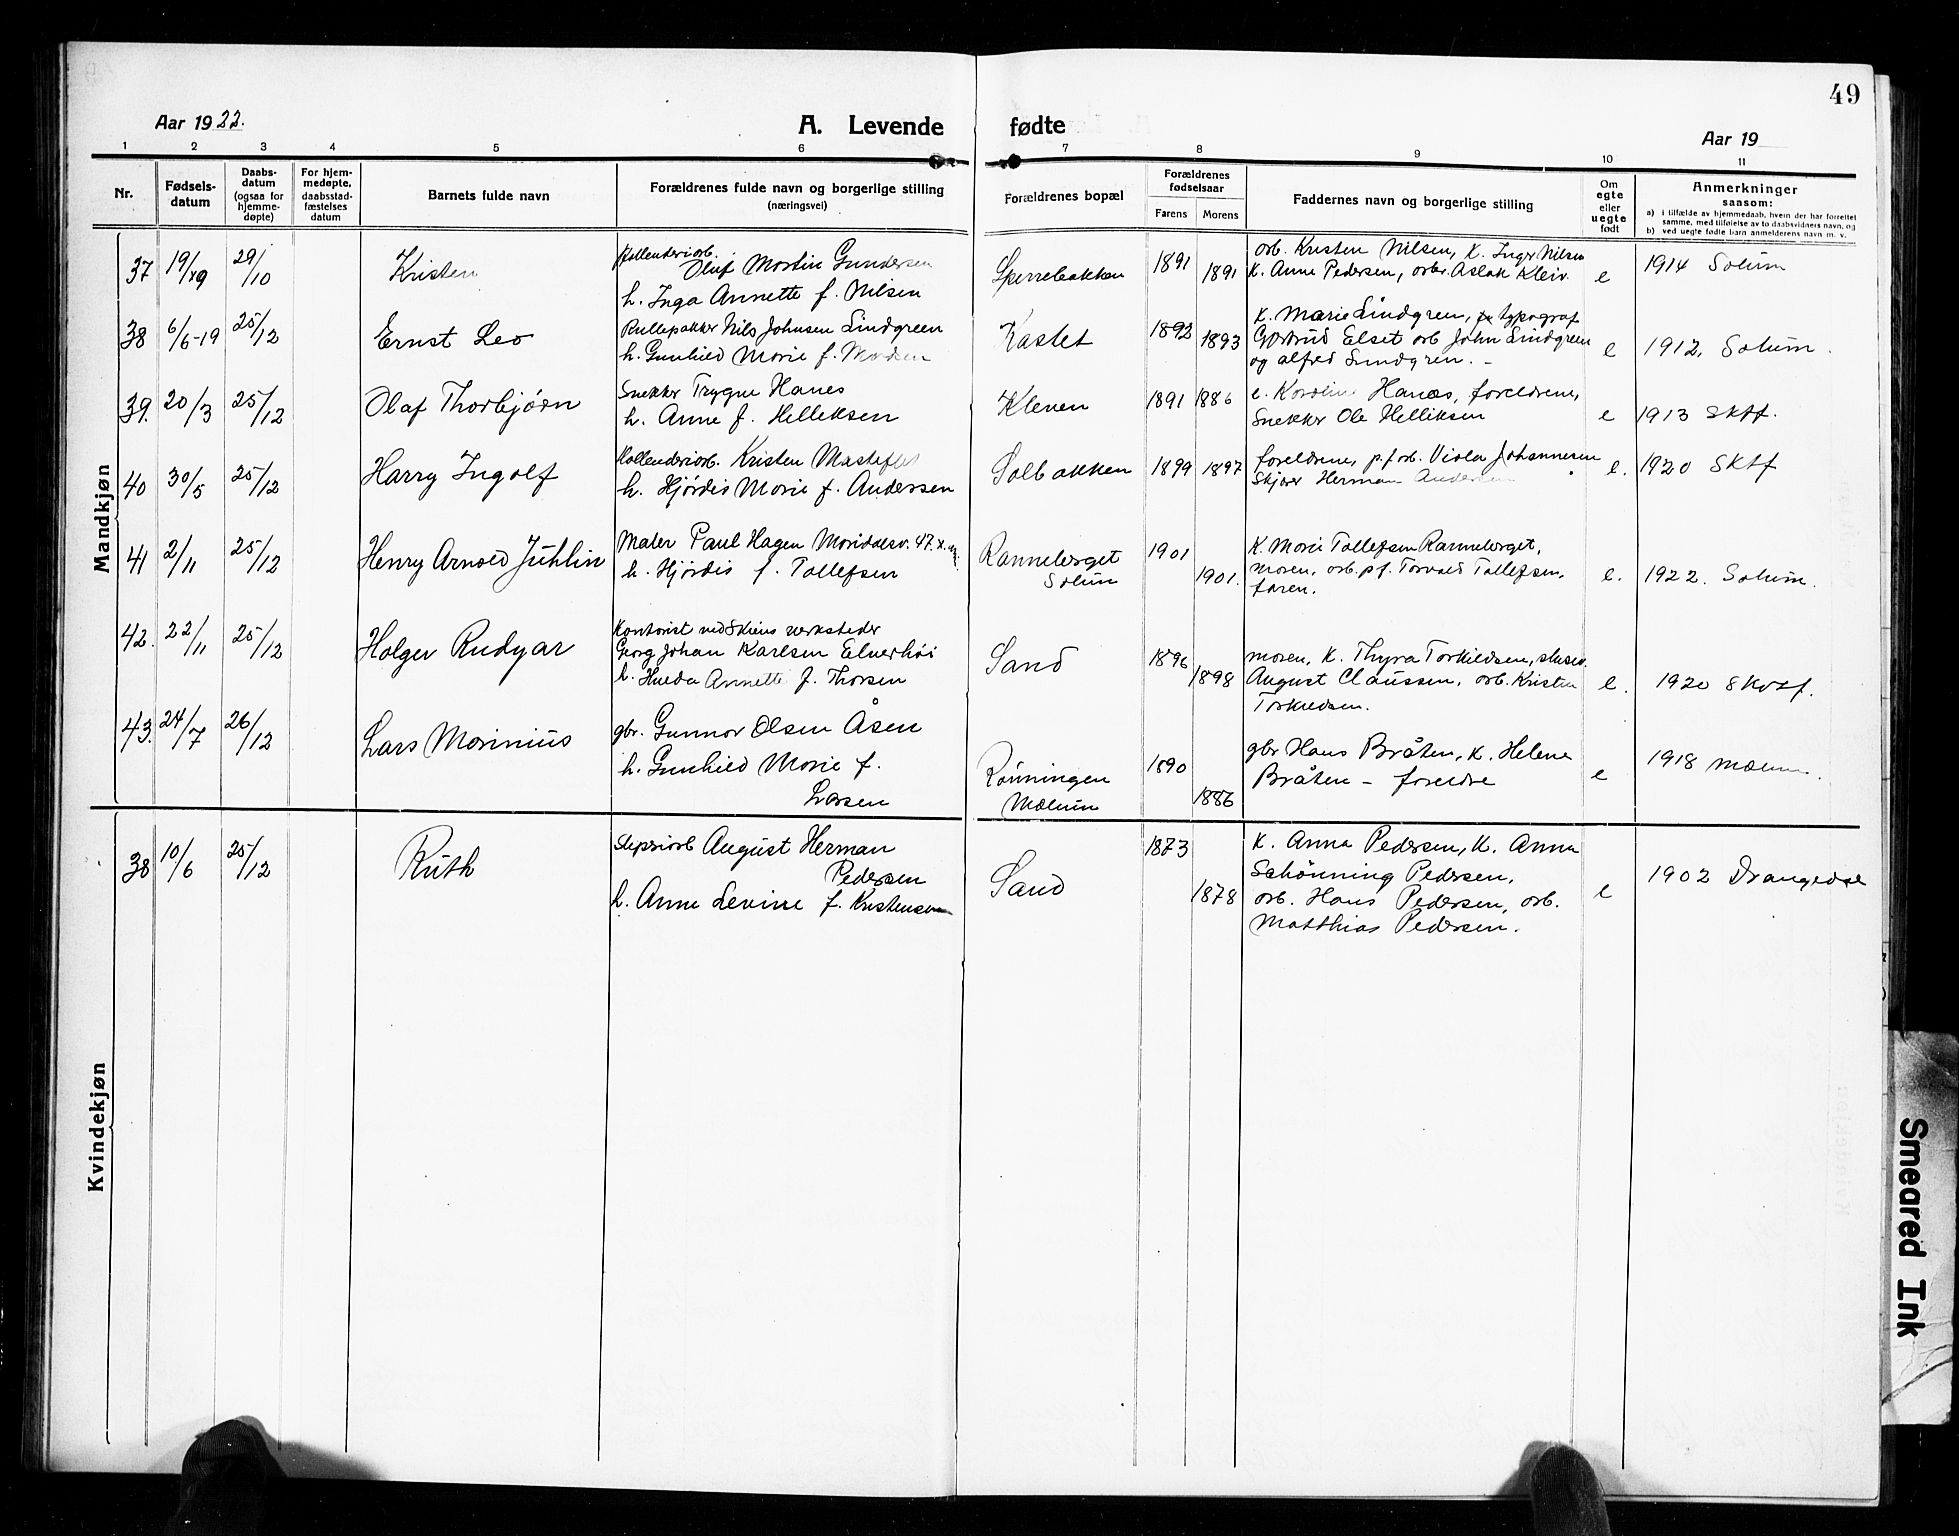 49
Aar 1922.
A. Levende
fødte
Aar 19
1 2 3 4 5 6 7 8 9 10 11
Nr.
Fødsels-
datum
Daabs-
datum
(ogsaa for
hjemme-
døpte)
For hjem-
medøpte,
daabsstad-
fæstelses
datum
Barnets fulde navn
Forældrenes fulde navn og borgerlige stilling
(næringsvei)
Forældrenes bopæl
Forældrenes
fødselsaar
Farens
Morens
Faddernes navn og borgerlige stilling
Om
egte
eller
uegte
født
Anmerkninger
saasom:
a) i tilfælde av hjemmedaab, hvem der har forrettet
samme, med tilføielse av to daabsvidners navn, og
b) ved uegte fødte barn anmelderens navn m. v.
Mandkjøn
37
19/19
29/10
Kristen
Hollenderiarb.
Oluf Martin Gundersen
h. Inga Annette f. Nilsen
Sperrebakken
1891
1891
arb. Kristen Nilsen, K. Inger Nilsen
K. Anne Pedersen, arb. Aslak Kleiv.
e
1914 Solum
38
6/6-19
25/12
Ernst Leo
Rullepakker Nils Johnsen Lindgreen
h. Gunhild Marie f.
Kastet
1892
1893
K. Marie Lindgren, typograf
Gjertrud Elset arb John Lindgreen
og Alfred Lindgren. -
e
1912, Solum.
39.
20/3
25/12
Olaf Thorbjørn
Snekker Trygve Hanes
h. Anne f. Helleksen
Kleven
1891
1886
e. Karoline Hanæs, foreldrene,
Snekker Ole Helliksen
e
1913 Sktf.
40
30/5
25/12
Harry Ingolf
Hollenderiarb. Kristen
h. Hjørdis Marie f. Andersen
Solbakken
1899
1897
foreldrene, p.f. arb. Viola Johannesen
Skjører Herman Andersen
e.
1920 Sktf
41
2/11
25/12
Henry Arnold Juhlin
Maler Paul Hagen Meriddalsv. 47.
h. Hjørdis f. Tollefsen
Ranneberget
Solum
1901
1901.
K. Marie Tollefsen Ranneberget,
moren, arb. pf. Torvald Tollefsen,
faren.
e.
1922. Solum.
42.
22/11
25/12
Holger Rudyar
Kontorist ved Skiens verksteder
Georg Johan Karlsen Elverhøi
h. Hulda Annette f. Thorsen
Sand
1896
1898
moren, K. Thyra Torkildsen,
August Claussen, arb. Kristen
Torkildsen.
e.
1920 Skotf.
43.
24/7
26/12
Lars Marinius
gbr. Gunnar Olsen Åsen
h. Gunhild Marie f.
Larsen
Rønningen
Mælum
1890
1886
gbr Hans Bråten, K. Helene
Bråten - foreldre
e
1918 Mælum.
Kvindekjøn
38
10/6
25/12
Ruth
Sliperiarb August Herman
Pedersen
h. Anne Levine f. Kristensen
Sand
1873
1878
K. Anna Pedersen, K. Anna
Schønning Pedersen,
arb. Hans Pedersen, arb.
Matthias Pedersen.
e
1902 Drangedal
Smeared Ink